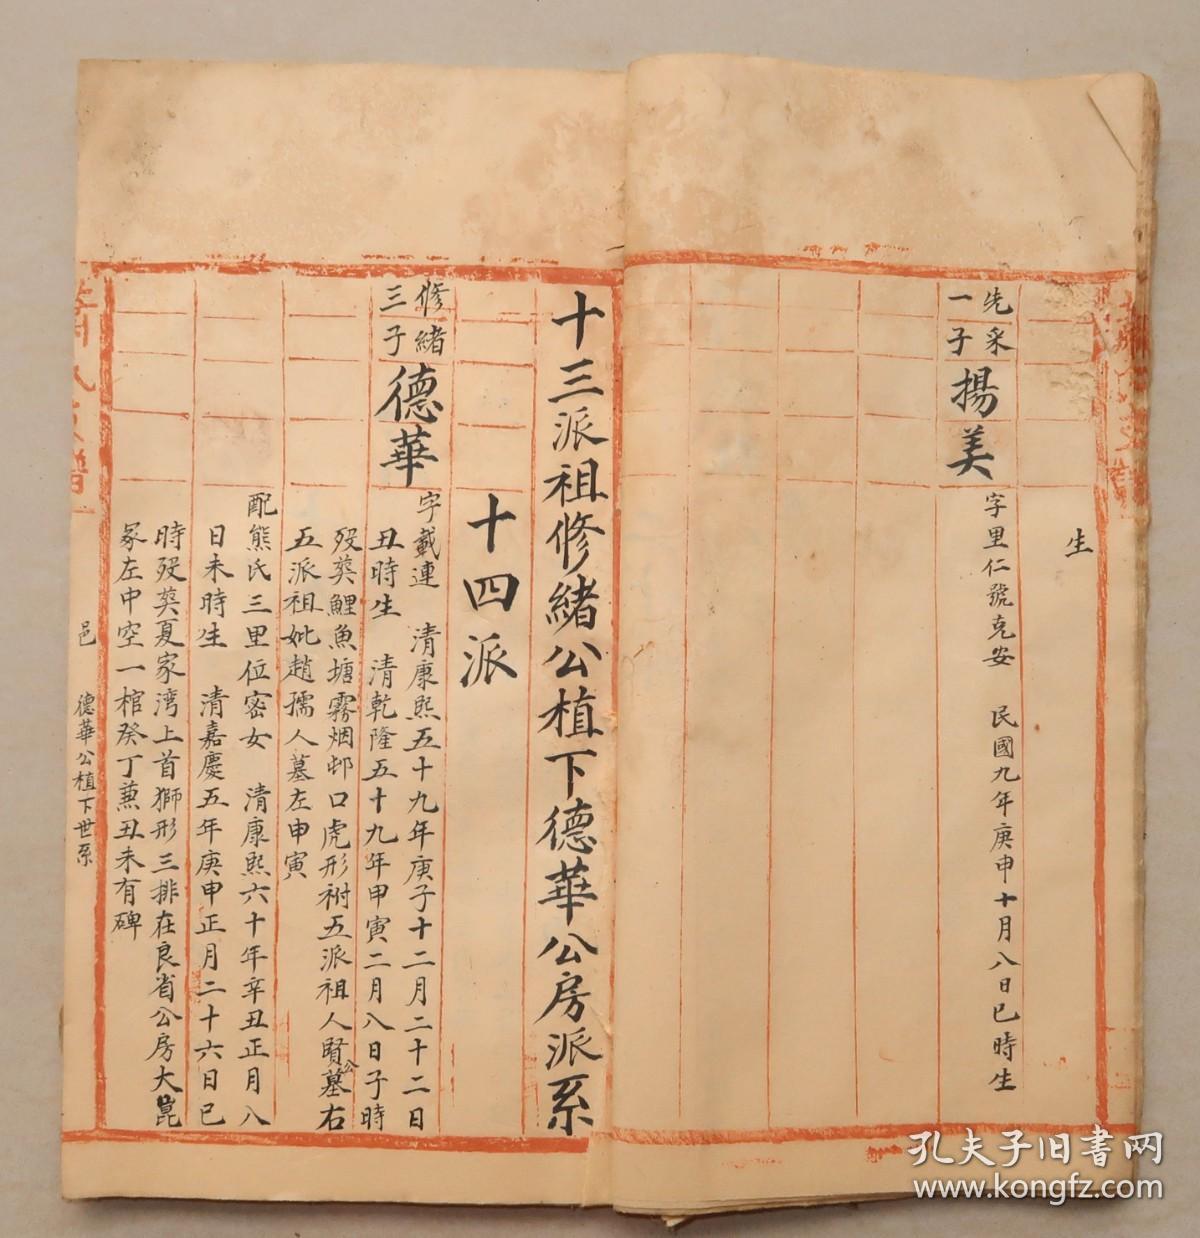 生
先采
一子
揚美
字里仁號克安 民國九年庚申十月八日巳時生
十三派祖修緒公植下德華公房派系
十四派
修緒
三子
德華
字戴連 清康熙五十九年庚子十二月二十二日
丑時生 清乾隆五十九年甲寅二月八日子時
殁葬鯉魚塘霧烟邨口虎形祔五派祖人賢公墓右
五派祖妣趙孺人墓左申寅
配熊氏三里位密女 清康熙六十年辛丑正月八
日未時生 清嘉慶五年庚申正月二十六日巳
時殁葬夏家湾上首獅形三排在良省公房大崑
冢左中空一棺癸丁兼丑未有碑
邑 德華公植下世系
孔夫子旧书网
www.kongfz.com